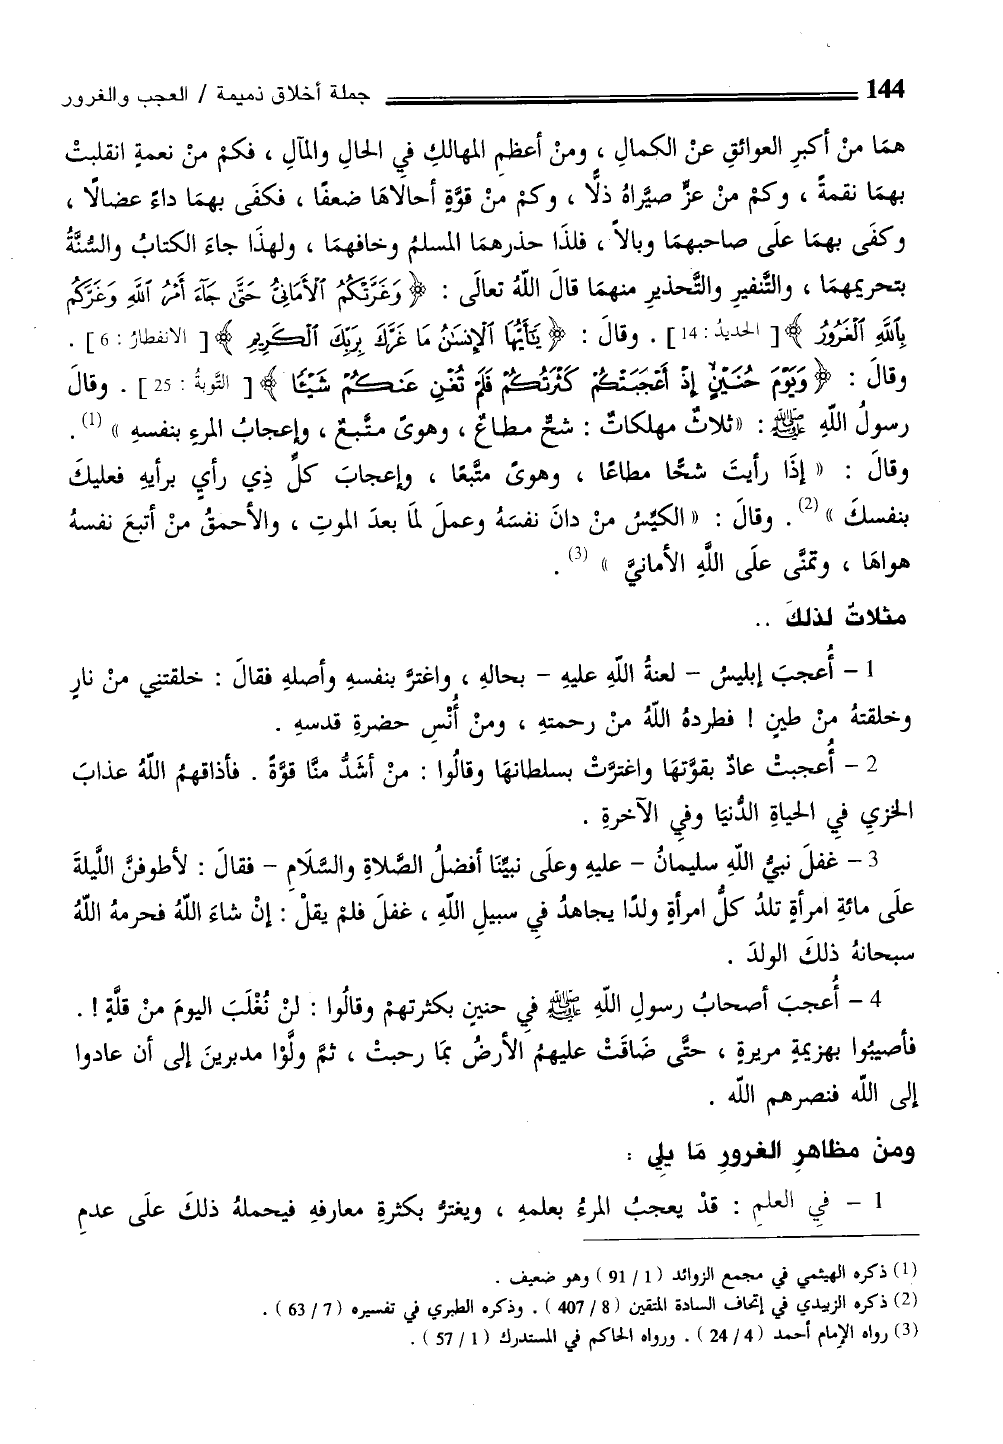 144 جملة أخلاق ذميمة / العجب والغرور
همَا منْ أكبرِ العوائقِ عنْ الكمالِ ، ومنْ أعظمِ المهالكِ فِي الحالِ والمآلِ ، فكمْ منْ نعمةٍ انقلبتْ
بهمَا نقمةً ، وكمْ منْ عزٍّ صيَّراهُ ذلًّا ، وكمْ منْ قوَّةٍ أحالاهَا ضعفًا ، فكفَى بهمَا داءً عضالًا ،
وكفَى بهمَا علَى صاحبهمَا وبالاً ، فلذَا حذرهمَا المسلمُ وخافهمَا ، ولهذَا جاءَ الكتابُ والسُّنَّةُ
بتحريمهمَا ، والتَّنفيرِ والتَّحذيرِ منهمَا قالَ اللَّهُ تعالَى : ﴿ وَغَرَّتْكُمُ ٱلْأَمَانِىُّ حَتَّىٰ جَآءَ أَمْرُ ٱللَّهِ وَغَرَّكُم
بِٱللَّهِ ٱلْغَرُورُ ﴾ [ الحديدُ : 14 ] . وقالَ : ﴿ يَٰٓأَيُّهَا ٱلْإِنسَٰنُ مَا غَرَّكَ بِرَبِّكَ ٱلْكَرِيمِ ﴾ [ الانفطارُ : 6 ] .
وقالَ : ﴿ وَيَوْمَ حُنَيْنٍ إِذْ أَعْجَبَتْكُمْ كَثْرَتُكُمْ فَلَمْ تُغْنِ عَنكُمْ شَيْـًٔا ﴾ [ التَّوبةُ : 25 ] . وقالَ
رسولُ اللَّهِ ﷺ : « ثلاثٌ مهلكاتٌ : شحٌّ مطاعٌ ، وهوىً متَّبعٌ ، وإعجابُ المرءِ بنفسهِ » (1) .
وقالَ : « إذَا رأيتَ شحًّا مطاعًا ، وهوىً متَّبعًا ، وإعجابَ كلِّ ذِي رأيٍ برأيهِ فعليكَ
بنفسكَ » (2) . وقالَ : « الكيِّسُ منْ دانَ نفسَهُ وعملَ لمَا بعدَ الموتِ ، والأحمقُ منْ أتبعَ نفسهُ
هواهَا ، وتمنَّى علَى اللَّهِ الأمانيَّ » (3) .
مثلاتٌ لذلكَ ..
1 – أُعجبَ إبليسُ – لعنةُ اللَّهِ عليهِ – بحالهِ ، واغترَّ بنفسهِ وأصلهِ فقالَ : خلقتنِي منْ نارٍ
وخلقتهُ منْ طينٍ ! فطردهُ اللَّهُ منْ رحمتهِ ، ومنْ أُنْسِ حضرةِ قدسهِ .
2 – أُعجبتْ عادٌ بقوَّتهَا واغترَّتْ بسلطانهَا وقالُوا : منْ أشَدُّ منَّا قوَّةً . فأذاقهمُ اللَّهُ عذابَ
الخزيِ فِي الحياةِ الدُّنيَا وفِي الآخرةِ .
3 – غفلَ نبيُّ اللَّهِ سليمانُ – عليهِ وعلَى نبيِّنَا أفضلُ الصَّلاةِ والسَّلَامِ – فقالَ : لأطوفنَّ اللَّيلةَ
علَى مائةِ امرأةٍ تلدُ كلُّ امرأةٍ ولدًا يجاهدُ فِي سبيلِ اللَّهِ ، غفلَ فلمْ يقلْ : إنْ شاءَ اللَّهُ فحرمهُ اللَّهُ
سبحانهُ ذلكَ الولدَ .
4 – أُعجبَ أصحابُ رسولِ اللَّهِ ﷺ فِي حنينٍ بكثرتهمْ وقالُوا : لنْ نُغْلَبَ اليومَ منْ قلَّةٍ ! .
فأصيبُوا بهزيمةٍ مريرةٍ ، حتَّى ضَاقَتْ عليهمُ الأرضُ بمَا رحبتْ ، ثمَّ ولَّوْا مدبرينَ إلى أن عادوا
إلى اللَّه فنصرهم اللَّه .
ومنْ مظاهرِ الغرورِ مَا يلِي :
1 – فِي العلمِ : قدْ يعجبُ المرءُ بعلمهِ ، ويغترُّ بكثرةِ معارفهِ فيحملهُ ذلكَ علَى عدمِ
(1) ذكره الهيثمي في مجمع الزوائد ( 1 / 91 ) وهو ضعيف .
(2) ذكره الزبيدي في إتحاف السادة المتقين ( 8 / 407 ) . وذكره الطبري في تفسيره ( 7 / 63 ) .
(3) رواه الإمام أحمد ( 4 / 24 ) . ورواه الحاكم في المستدرك ( 1 / 57 ) .